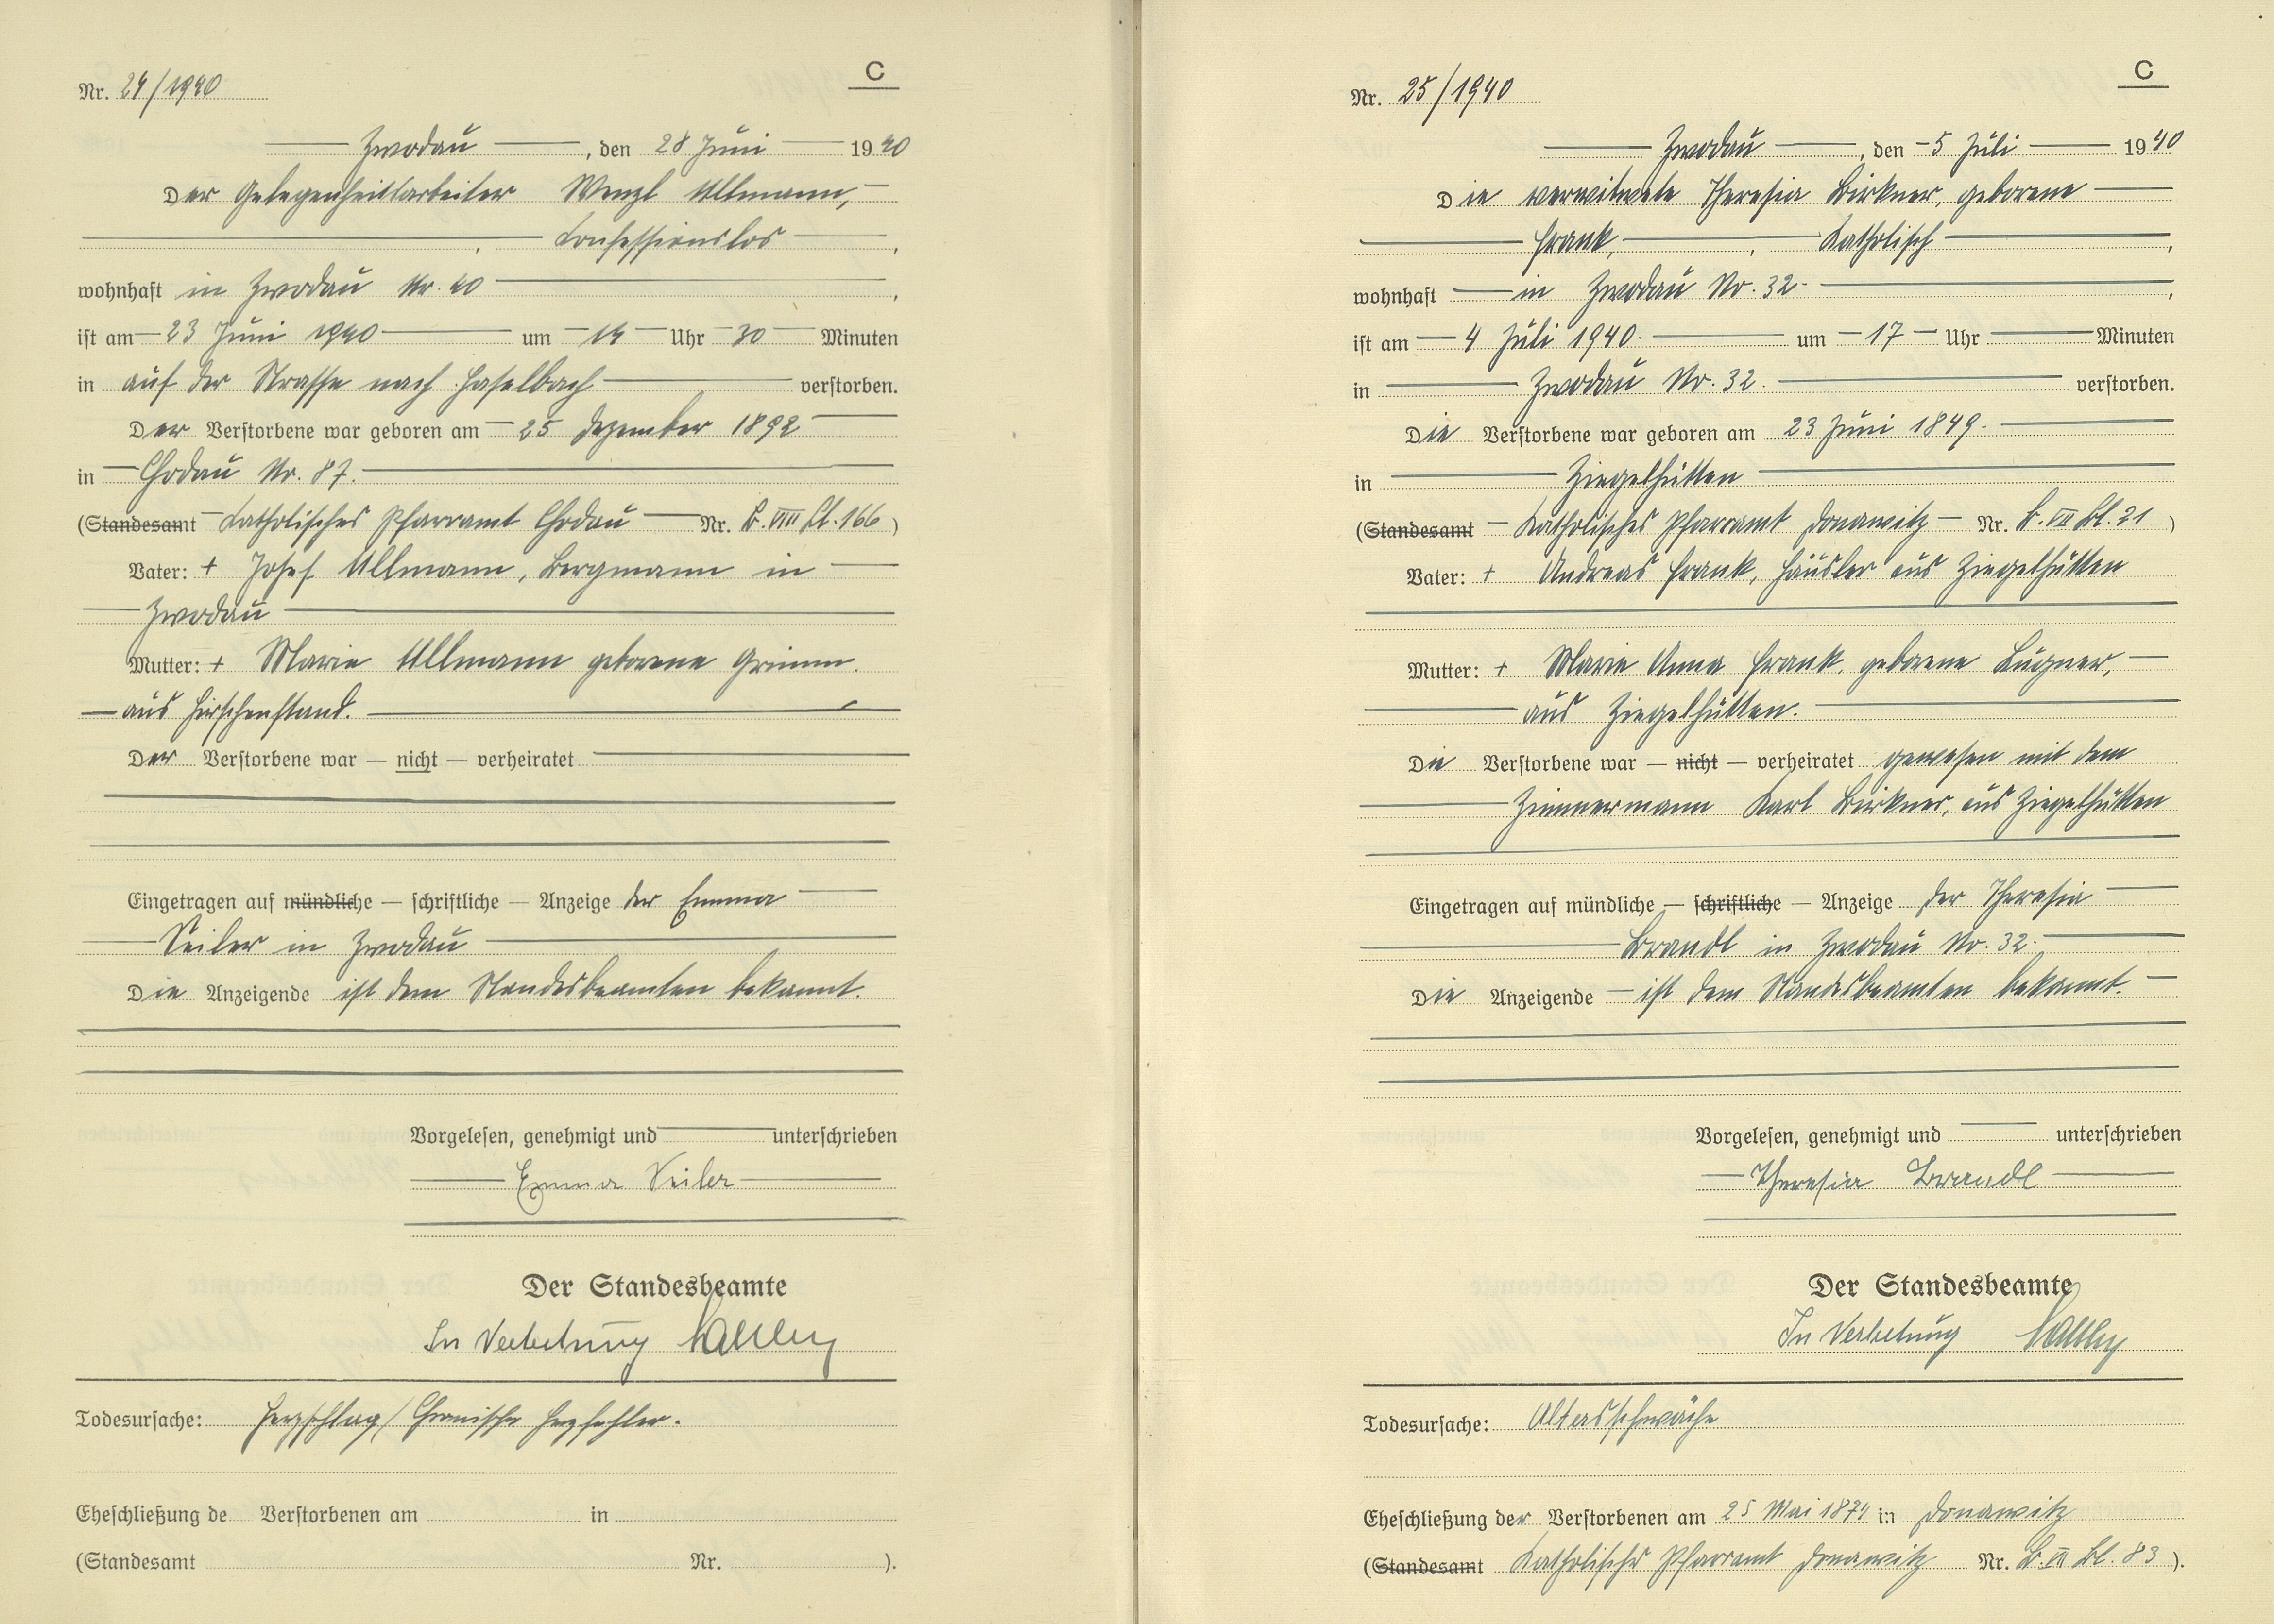 C
Nr. 24/1940
Zwodau, den 28 Juni 1940
Der Gelegenheitsarbeiter Wenzl Ullmann,
, konfessionslos,
wohnhaft in Zwodau Nr. 40,
ist am 23 Juni 1940 um 14 Uhr 30 Minuten
in auf der Strasse nach Haselbach verstorben.
Der Verstorbene war geboren am 25 Dezember 1892
in Chodau Nr. 87.
(Standesamt Katholisches Pfarramt Chodau Nr. B. VIII Bl. 166)
Vater: + Josef Ullmann, Bergmann in
Zwodau
Mutter: + Marie Ullmann geborene Grimm.
aus Hirschenstand.
Der Verstorbene war — nicht — verheiratet
Eingetragen auf mündliche — schriftliche — Anzeige der Emma
Seiler in Zwodau
Die Anzeigende ist dem Standesbeamten bekannt.
Vorgelesen, genehmigt und unterschrieben
Emma Seiler
Der Standesbeamte
In Vertretung
Todesursache: Herzschlag/Chronischer Herzfehler.
Eheschließung de Verstorbenen am in
(Standesamt Nr. ).
C
Nr. 25/1940
Zwodau, den 5 Juli 1940
Die verwitwete Theresia Birkner, geborene
Frank, , Katholisch,
wohnhaft in Zwodau No. 32.,
ist am 4 Juli 1940. um 17 Uhr Minuten
in Zwodau No. 32. verstorben.
Die Verstorbene war geboren am 23 Juni 1849.
in Ziegelhütten
(Standesamt Katholisches Pfarramt Donawitz Nr. B. VII Bl. 21)
Vater: + Andreas Frank, Häusler aus Ziegelhütten
Mutter: + Marie Anna Frank, geborene Lugner,
aus Ziegelhütten.
Die Verstorbene war — nicht — verheiratet gewesen mit dem
Zimmermann Karl Birkner, aus Ziegelhütten
Eingetragen auf mündliche — schriftliche — Anzeige der Theresia
Brandl in Zwodau No. 32.
Die Anzeigende ist dem Standesbeamten bekannt.
Vorgelesen, genehmigt und unterschrieben
Theresia Brandl
Der Standesbeamte
In Vertretung
Todesursache: Altersschwäche
Eheschließung der Verstorbenen am 25 Mai 1874 in Donawitz
(Standesamt Katholisches Pfarramt Donawitz Nr. B. Bl. 83).